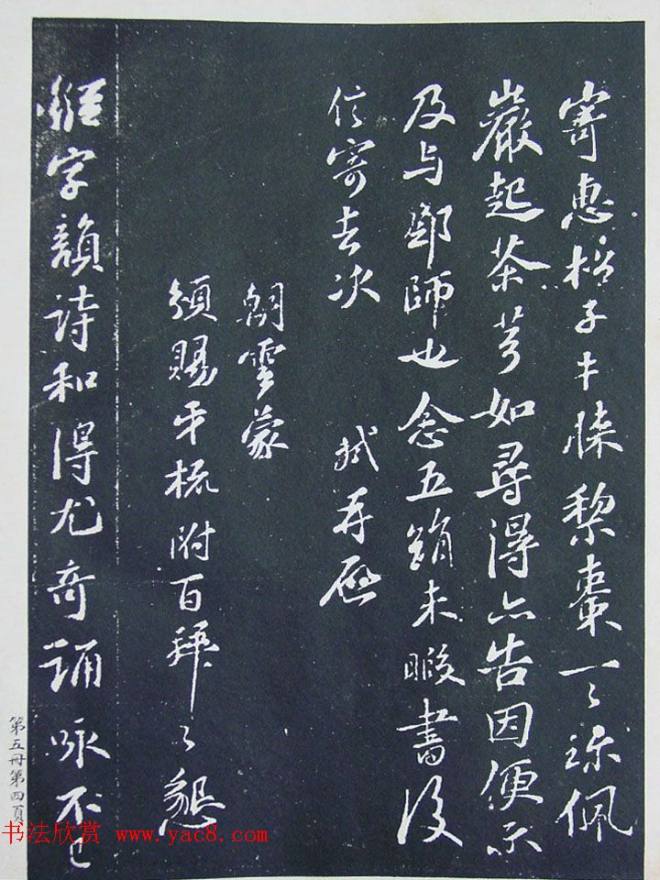 寄惠柏子丰悚梨棗一一珎佩
嚴起茶芎如尋得亦告因便示
及与鄧師也念五頟未暇書後
信寄去次 軾再啟
朝雲蒙
頒賜牙梳附百拜之懇
經字韻詩和得尤奇誦咏不已
第五冊第四頁
书法欣赏 www.yac8.com